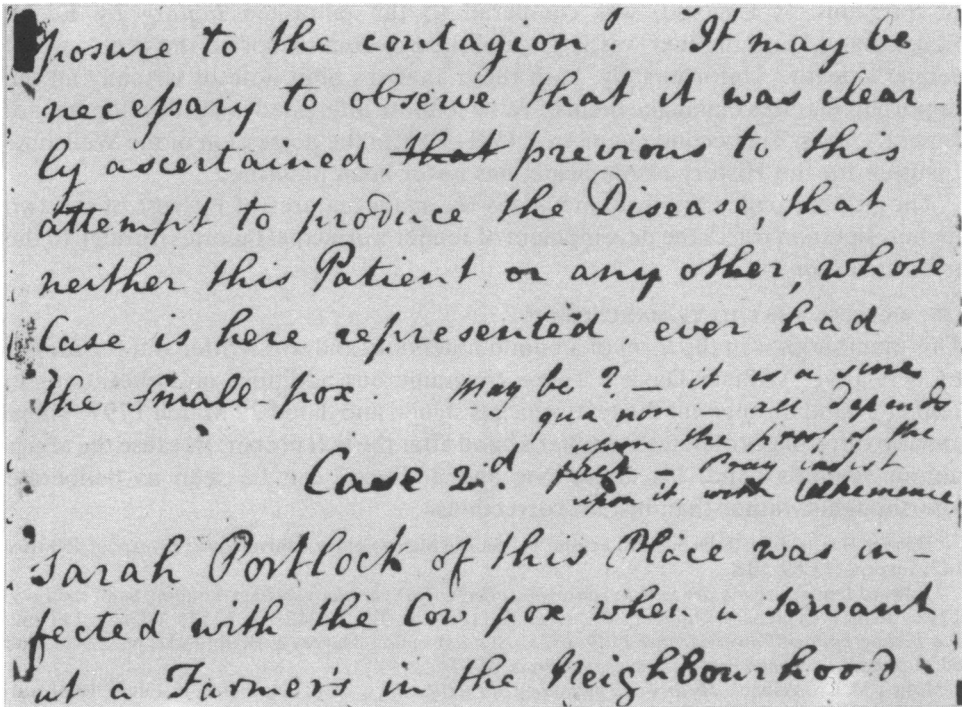 posure to the contagion. It may be
necessary to observe that it was clear
ly ascertained that previous to this
attempt to produce the Disease, that
neither this Patient or any other, whose
Case is here represented ever had
the Small-pox.
may be? it is a sine
qua non — all depends
upon the proof of the
fact — Pray insist
upon it, with Vehemence
Case 2d.
Sarah Portlock of this Place was in-
fected with the Cow pox when a Servant
at a Farmer's in the Neighbourhood.